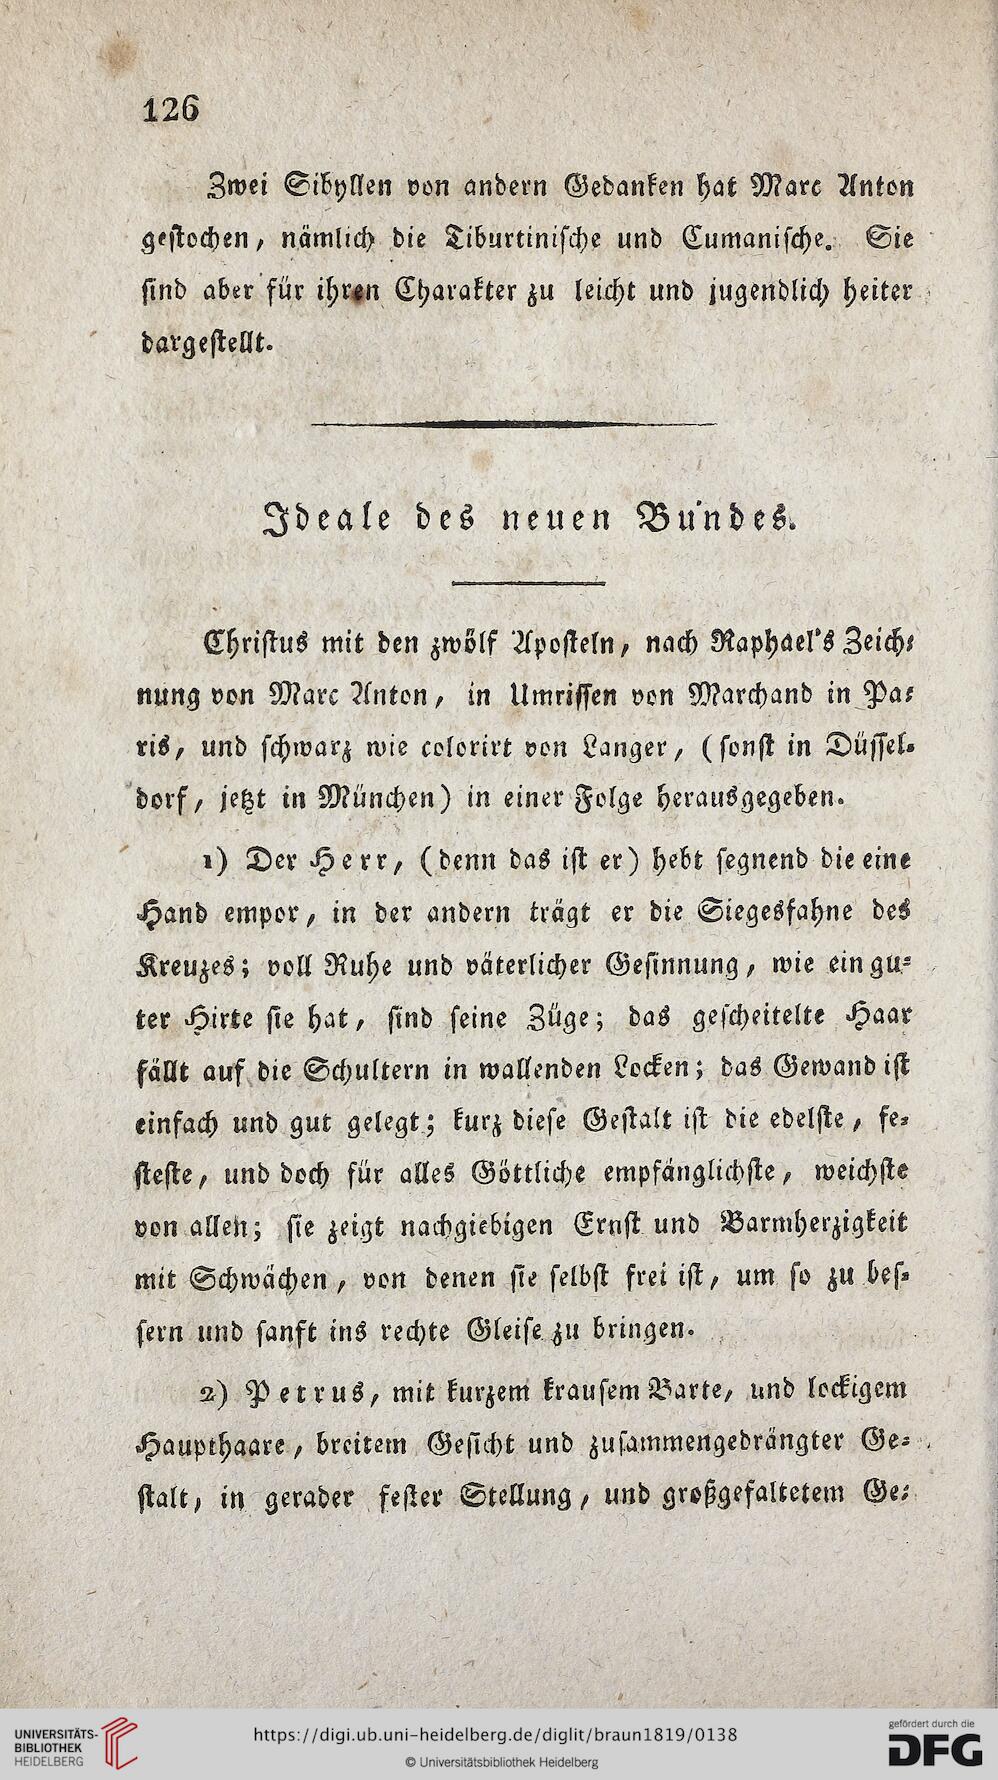 126
Zwei Sibyllen von andern Gedanken hat Marc Anton
gestochen, nämlich die Tiburtinische und Cumanische. Sie
sind aber für ihren Charakter zu leicht und jugendlich heiter
dargestellt.
Ideale des neuen Bundes.
Christus mit den zwölf Aposteln, nach Raphael's Zeich-
nung von Marc Anton, in Umrissen von Marchand in Pa-
ris, und schwarz wie colorirt von Langer, (sonst in Düssel-
dorf, jetzt in München) in einer Folge herausgegeben.
1) Der Herr, (denn das ist er) hebt segnend die eine
Hand empor, in der andern trägt er die Siegesfahne des
Kreuzes; voll Ruhe und väterlicher Gesinnung, wie ein gu-
ter Hirte sie hat, sind seine Züge; das gescheitelte Haar
fällt auf die Schultern in wallenden Locken; das Gewand ist
einfach und gut gelegt; kurz diese Gestalt ist die edelste, fe-
steste, und doch für alles Göttliche empfänglichste, weichste
von allen; sie zeigt nachgiebigen Ernst und Barmherzigkeit
mit Schwächen, von denen sie selbst frei ist, um so zu bes-
sern und sanft ins rechte Gleise zu bringen.
2) Petrus, mit kurzem krausem Barte, und lockigem
Haupthaare, breitem Gesicht und zusammengedrängter Ge-
stalt, in gerader fester Stellung, und großgefaltetem Ge-
UNIVERSITÄTS-
BIBLIOTHEK
HEIDELBERG
https://digi.ub.uni-heidelberg.de/diglit/braun1819/0138
© Universitätsbibliothek Heidelberg
gefördert durch die
DFG